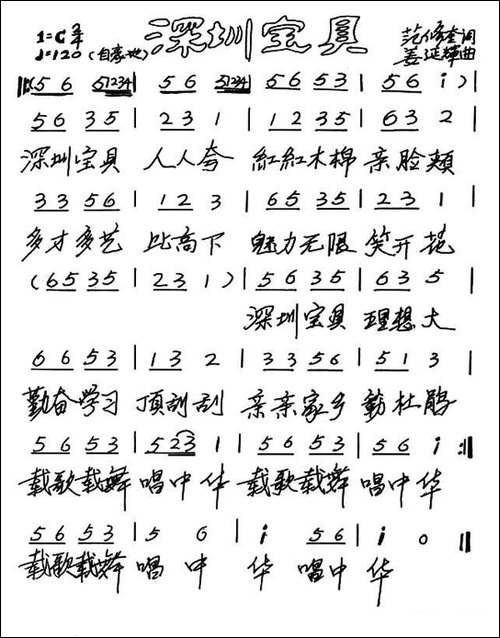 1=C 2/4 深圳宝貝 范修奎词
♩=120 (自豪地) 姜延輝曲
‖:(56 51234 | 56 51234 | 56 53 | 56 i) |
56 35 | 23 1 | 12 35 | 63 2 |
深圳宝貝 人人夸 紅紅木棉 亲脸颊
33 56 | 12 3 | 65 35 | 23 1 |
多才多艺 比高下 魅力无限 笑开花
(65 35 | 23 1) | 56 35 | 63 5 |
深圳宝貝 理想大
66 53 | 13 2 | 33 56 | 51 3 |
勤奋学习 頂刮刮 亲亲家乡 簕杜鹃
56 53 | 523 1 | 56 53 | 56 i :‖
载歌载舞 唱中华 载歌载舞 唱中华
56 53 | 5 6 | i 56 | i 0 ‖
载歌载舞 唱 中 华 唱中 华